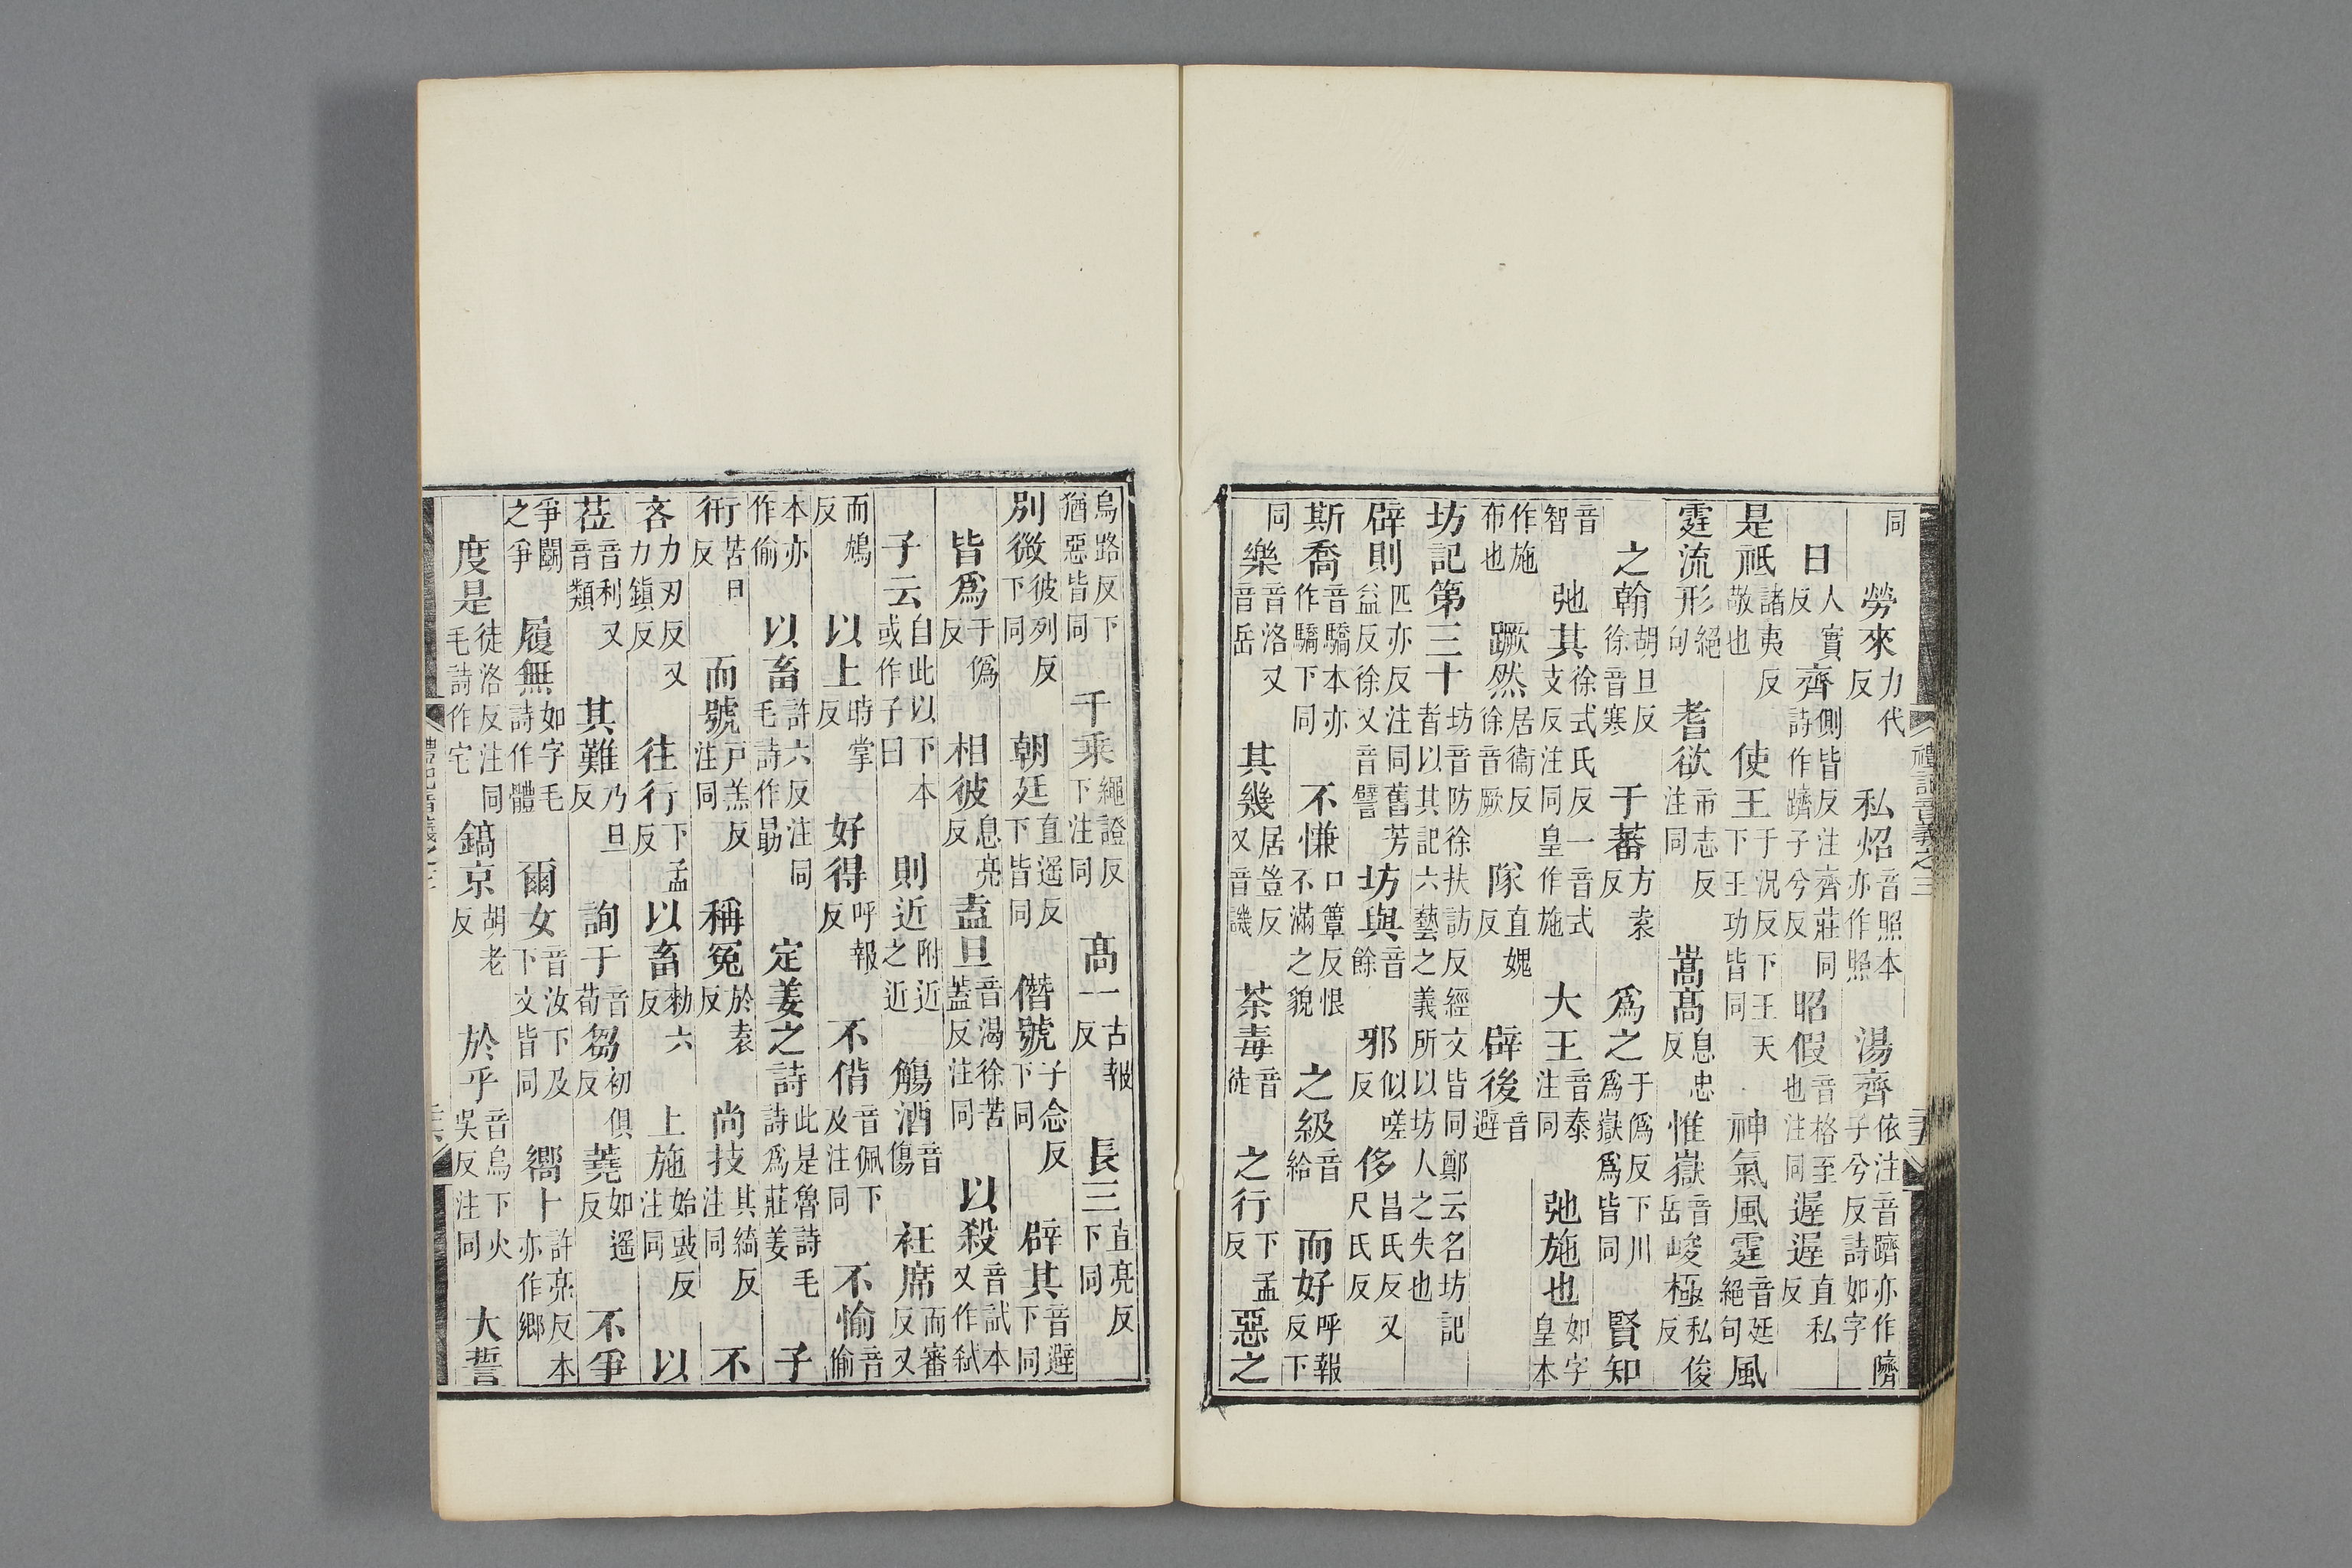 同　勞來力代反　私炤音照本亦作照　湯齊依注音躋亦作隮子兮反詩如字
日人實反　齊側皆反注齊莊同詩作躋子兮反　昭假音格至也注同　遲遲直私反
是祗諸夷反敬也　使王于況反下王天下王功皆同　神氣風霆音廷絕句　風
霆流形絕句　耆欲市志反注同　嵩高息忠反　惟嶽音岳　峻極私俊反
之翰胡旦反徐音寒　于蕃方袁反　爲之于僞反下川爲嶽爲皆同　賢知
音智　弛其徐式氏反一音式支反注同皇作施　大王音泰注同　弛施也如字皇本
作施布也　蹶然居衞反徐音厥　隊直媿反　辟後音避
坊記第三十坊音防徐扶訪反經文皆同鄭云名坊記者以其記六藝之義所以坊人之失也
辟則匹亦反注同舊芳益反徐又音譬　坊與音餘　邪似嗟反　侈昌氏反又尺氏反
斯喬音驕本亦作驕下同　不慊口簟反恨不滿之貌　之級音給　而好呼報反下
同　樂音洛又音岳　其幾居豈反又音譏　荼毒音徒　之行下孟反　惡之
烏路反下猶惡皆同　千乘繩證反下注同　高一古報反　長三直亮反下同
別微彼列反下同　朝廷直遥反下皆同　僭號子念反下同　辟其音避下同
皆爲于僞反　相彼息亮反　盍旦音渴徐苦蓋反注同　以殺音試本又作弒
子云自此以下本或作子曰　則近附近之近　觴酒音傷　衽席而審反又
而鴆反　以上時掌反　好得呼報反　不偝音佩下及注同　不愉音偷
本亦作偷　以畜許六反注同毛詩作勗　定姜之詩此是魯詩毛詩爲莊姜　子
衎苦旦反　而號戶羔反注同　稱冤於袁反　尚技其綺反注同　不
吝力刃反又力鎮反　往行下孟反　以畜勑六反　上施始豉反注同　以
莅音利又音類　其難乃旦反　詢于音荀　芻初俱反　蕘如遥反　不爭
爭鬪之爭　履無如字毛詩作體　爾女音汝下及下文皆同　嚮十許亮反本亦作鄉
度是徒洛反注同毛詩作宅　鎬京胡老反　於乎音烏下火吳反注同　大誓
禮記音義之三